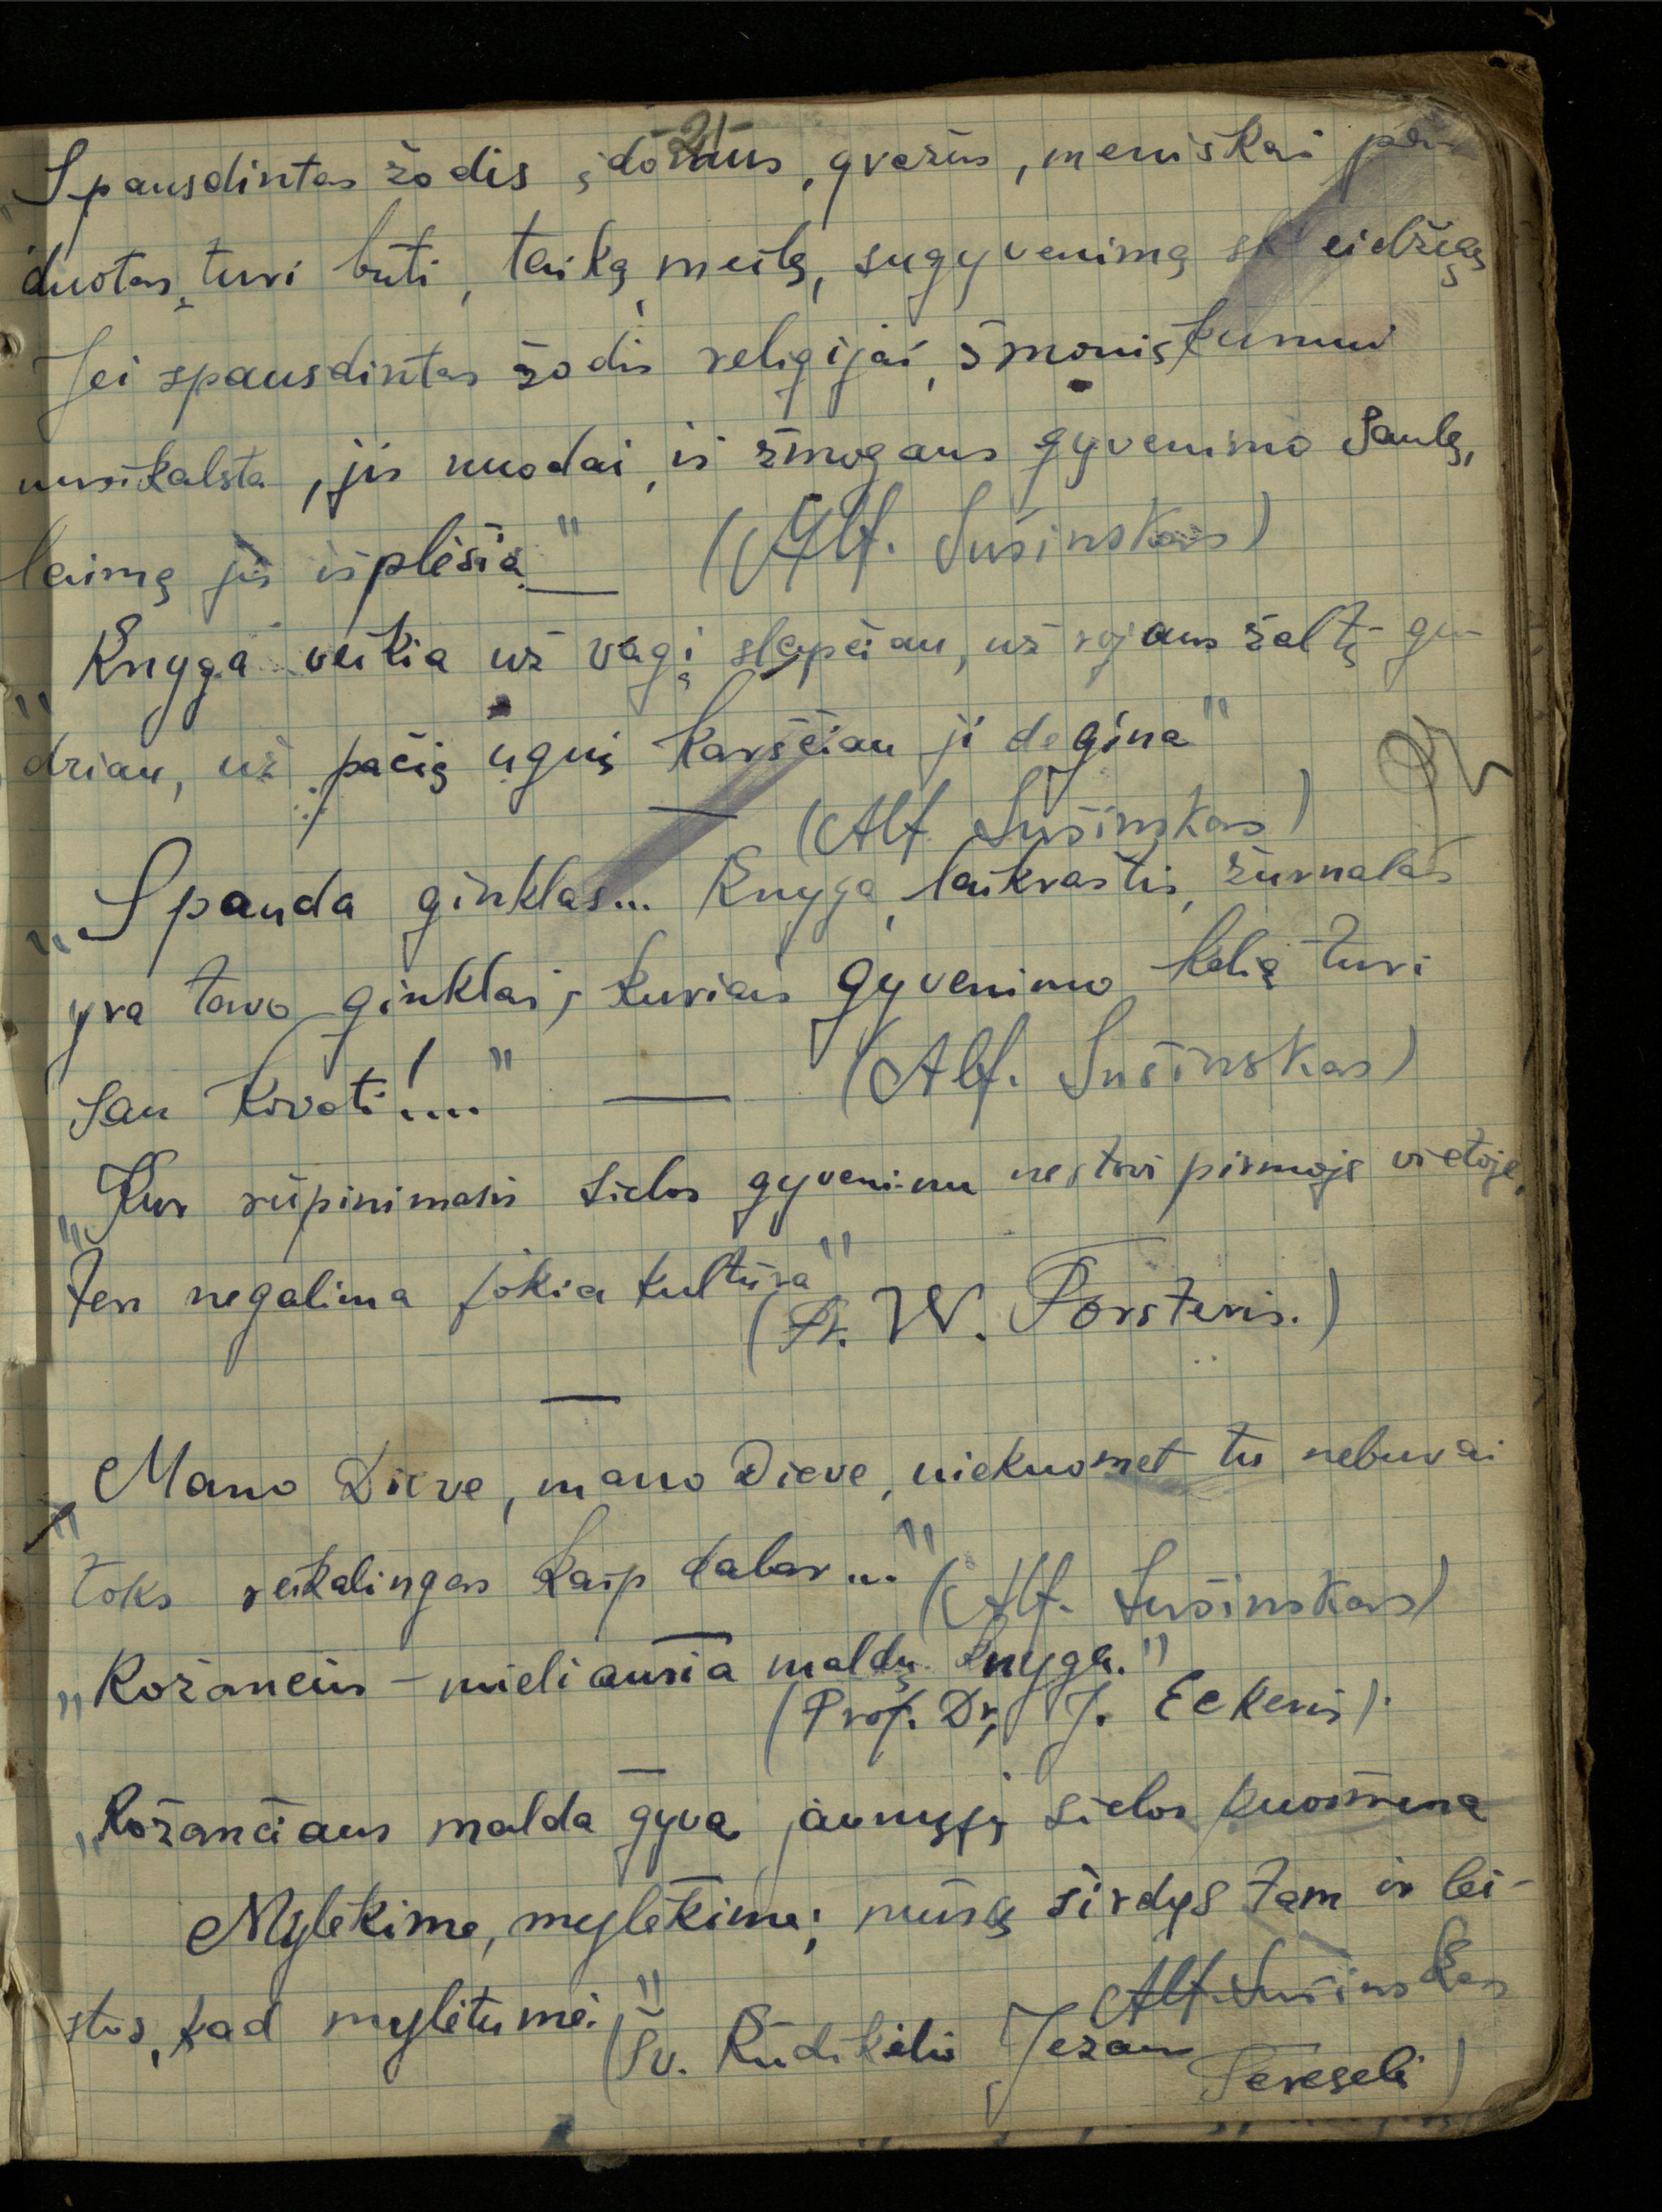 -21-
"Spausdintas žodis įdomus, gražus, meniškai pa-
duotas, turi būti, taiką, meilę, sugyvenimą skleidžiąs
Jei spausdintas žodis religijai, žmoniškumui
nusikalsta, jis nuodai, iš žmogaus gyvenimo saulę,
laimę jis išplėšia" — (Alf. Sušinskas)
"Knyga veikia už vagį slapčiau, už rojaus žaltį gu-
driau, už pačią ugnį karščiau ji degina"
— (Alf. Sušinskas)
"Spauda ginklas... Knyga, laikraštis, žurnalas
yra tavo ginklai, kuriais gyvenimo kelią turi
sau kovoti!...." — (Alf. Sušinskas)
"Kur rūpinimasis sielos gyvenimu nestovi pirmoje vietoje,
ten negalima jokia kultūra"
(Fr. W. Försteris.)
—
"Mano Dieve, mano Dieve, niekuomet tu nebuvai
toks reikalingas kaip dabar..." (Alf. Sušinskas)
"Rožančius – mieliausia maldų knyga."
(Prof. Dr. J. Eckeris).
—
"Rožančiaus malda gyva jaunųjų sielos
Alf. Sušinskas
Mylėkime, mylėkime; mūsų širdys tam ir lei-
stos, kad mylėtume."
(Šv. Kūdikėlio Jezaus
Teresėlė)